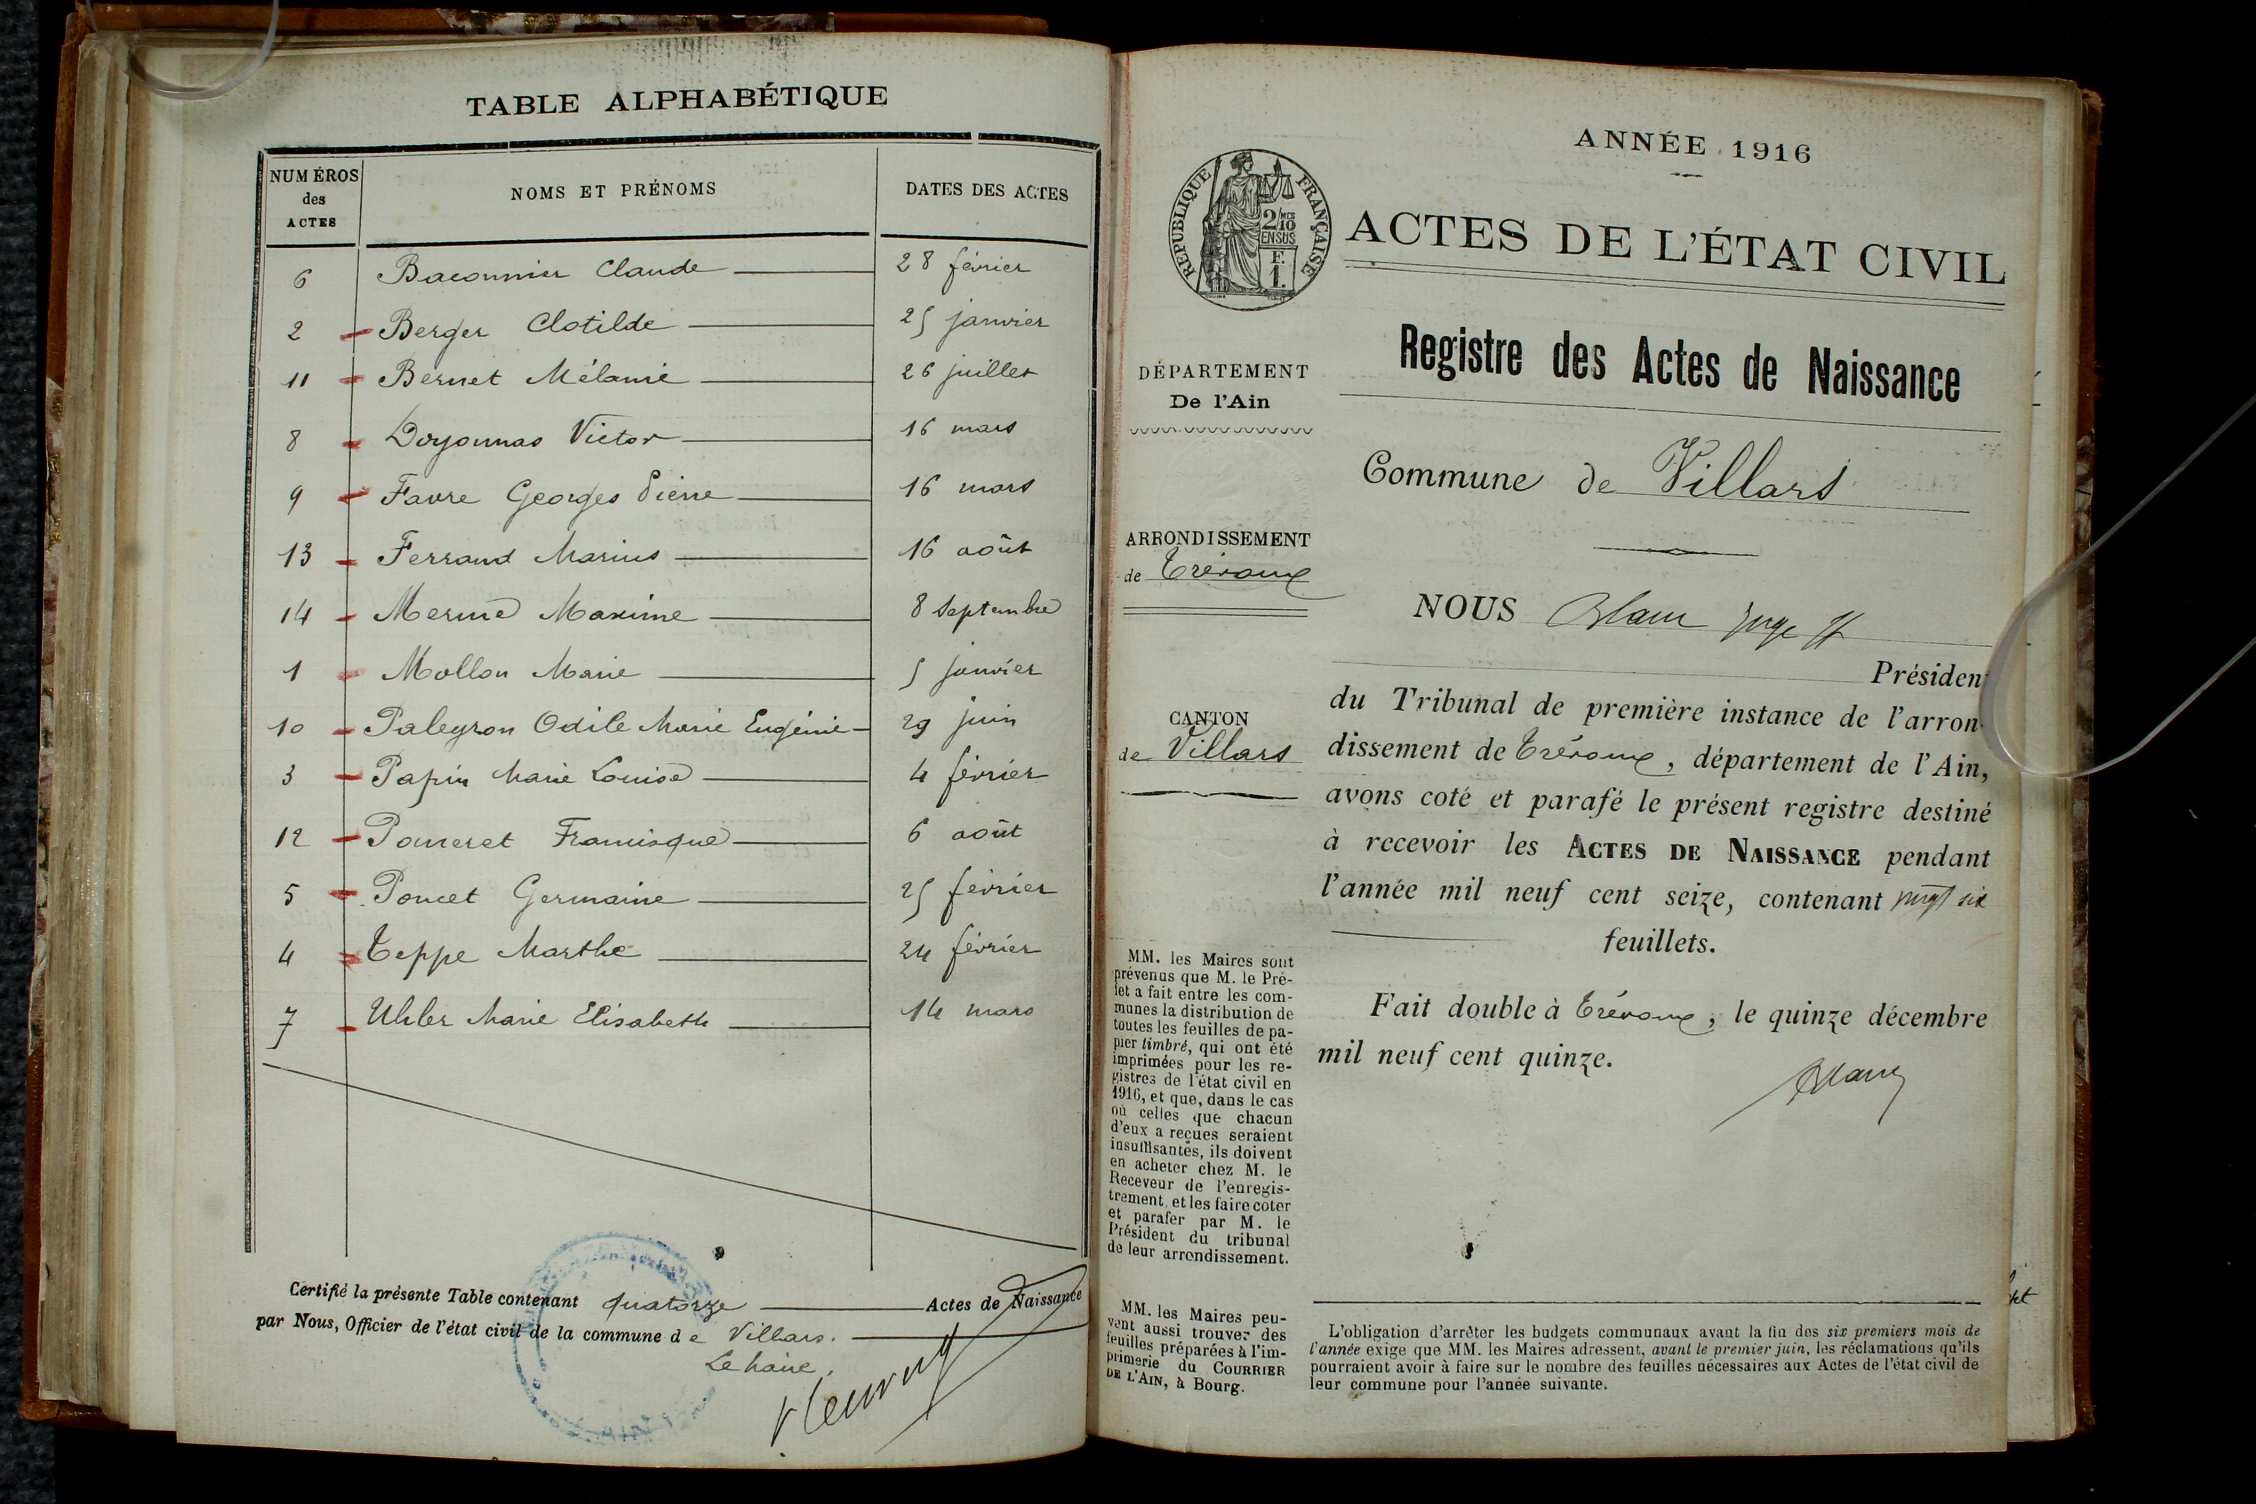 TABLE ALPHABÉTIQUE
NUMÉROS des ACTES
NOMS ET PRÉNOMS
DATES DES ACTES
6 Baconnier Claude 28 février
2 Berger Clotilde 25 janvier
11 Bernet Mélanie 26 juillet
8 Doyonnas Victor 16 mars
9 Favre Georges Pierre 16 mars
13 Ferrand Marius 16 août
14 Merme Maxime 8 septembre
1 Mollon Marie 5 janvier
10 Paleyron Odile Marie Eugénie 29 juin
3 Papin Marie Louise 4 février
12 Pomeret Francisque 6 août
5 Poncet Germaine 25 février
4 Teppe Marthe 24 février
7 Uhler Marie Elisabeth 14 mars
Certifié la présente Table contenant quatorze Actes de Naissance
par Nous, Officier de l'état civil de la commune de Villars.
Le Maire,
ANNÉE 1916
RÉPUBLIQUE FRANÇAISE
2/10 MES
EN SUS
F.
1.
ACTES DE L'ÉTAT CIVIL
Registre des Actes de Naissance
DÉPARTEMENT
De l'Ain
Commune de Villars
ARRONDISSEMENT
de Trévoux
CANTON
de Villars
NOUS juge
Présiden
du Tribunal de première instance de l'arron-
dissement de Trévoux, département de l'Ain,
avons coté et parafé le présent registre destiné
à recevoir les ACTES DE NAISSANCE pendant
l'année mil neuf cent seize, contenant vingt six
feuillets.
Fait double à Trévoux, le quinze décembre
mil neuf cent quinze.
MM. les Maires sont
prévenus que M. le Pré-
fet a fait entre les com-
munes la distribution de
toutes les feuilles de pa-
pier timbré, qui ont été
imprimées pour les re-
gistres de l'état civil en
1916, et que, dans le cas
où celles que chacun
d'eux a reçues seraient
insuffisantes, ils doivent
en acheter chez M. le
Receveur de l'enregis-
trement, et les faire coter
et parafer par M. le
Président du tribunal
de leur arrondissement.
MM. les Maires peu-
vent aussi trouver des
feuilles préparées à l'im-
primerie du COURRIER
DE L'AIN, à Bourg.
L'obligation d'arrêter les budgets communaux avant la fin des six premiers mois de
l'année exige que MM. les Maires adressent, avant le premier juin, les réclamations qu'ils
pourraient avoir à faire sur le nombre des feuilles nécessaires aux Actes de l'état civil de
leur commune pour l'année suivante.